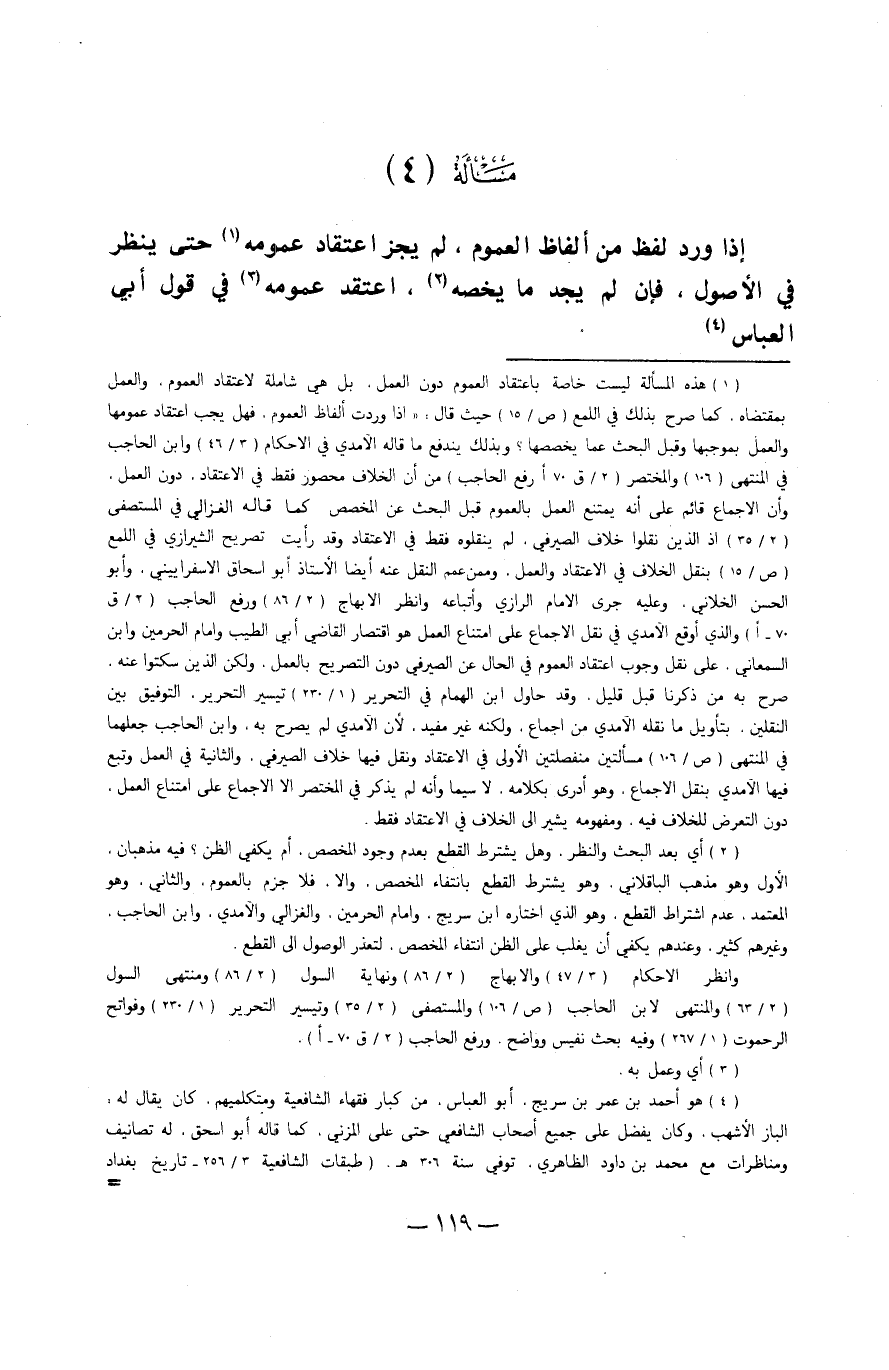 مسألة (٤)
إذا ورد لفظ من ألفاظ العموم ، لم يجز اعتقاد عمومه (١) حتى ينظر
في الأصول ، فإن لم يجد ما يخصه (٢) ، اعتقد عمومه (٣) في قول أبي
العباس (٤)
( ١ ) هذه المسألة ليست خاصة باعتقاد العموم دون العمل ، بل هي شاملة لاعتقاد العموم ، والعمل
بمقتضاه ، كما صرح بذلك في اللمع ( ص / ١٥ ) حيث قال : « اذا وردت ألفاظ العموم ، فهل يجب اعتقاد عمومها
والعمل بموجبها وقبل البحث عما يخصصها ؟ وبذلك يندفع ما قاله الآمدي في الاحكام ( ٣ / ٤٦ ) وابن الحاجب
في المنتهى ( ١٠٦ ) والمختصر ( ٢ / ق ٧٠ أ رفع الحاجب ) من أن الخلاف محصور فقط في الاعتقاد ، دون العمل ،
وأن الاجماع قائم على أنه يمتنع العمل بالعموم قبل البحث عن المخصص كما قاله الغزالي في المستصفى
( ٢ / ٣٥ ) اذ الذين نقلوا خلاف الصيرفي ، لم ينقلوه فقط في الاعتقاد وقد رأيت تصريح الشيرازي في اللمع
( ص / ١٥ ) بنقل الخلاف في الاعتقاد والعمل ، وممن عمم النقل عنه أيضا الأستاذ أبو اسحاق الاسفراييني ، وأبو
الحسن الخلاني ، وعليه جرى الامام الرازي وأتباعه وانظر الابهاج ( ٢ / ٨٦ ) ورفع الحاجب ( ٢ / ق
٧٠ - أ ) والذي أوقع الآمدي في نقل الاجماع على امتناع العمل هو اقتصار القاضي أبي الطيب وامام الحرمين وابن
السمعاني ، على نقل وجوب اعتقاد العموم في الحال عن الصيرفي دون التصريح بالعمل ، ولكن الذين سكتوا عنه ،
صرح به من ذكرنا قبل قليل . وقد حاول ابن الهمام في التحرير ( ١ / ٢٣٠ ) تيسير التحرير ، التوفيق بين
النقلين ، بتأويل ما نقله الآمدي من اجماع ، ولكنه غير مفيد ، لأن الآمدي لم يصرح به ، وابن الحاجب جعلهما
في المنتهى ( ص / ١٠٦ ) مسألتين منفصلتين الأولى في الاعتقاد ونقل فيها خلاف الصيرفي ، والثانية في العمل وتبع
فيها الآمدي بنقل الاجماع ، وهو أدرى بكلامه ، لا سيما وأنه لم يذكر في المختصر الا الاجماع على امتناع العمل ،
دون التعرض للخلاف فيه ، ومفهومه يشير الى الخلاف في الاعتقاد فقط .
( ٢ ) أي بعد البحث والنظر ، وهل يشترط القطع بعدم وجود المخصص ، أم يكفي الظن ؟ فيه مذهبان ،
الأول وهو مذهب الباقلاني ، وهو يشترط القطع بانتفاء المخصص ، والا ، فلا جزم بالعموم ، والثاني ، وهو
المعتمد ، عدم اشتراط القطع ، وهو الذي اختاره ابن سريج ، وامام الحرمين ، والغزالي والآمدي ، وابن الحاجب ،
وغيرهم كثير ، وعندهم يكفي أن يغلب على الظن انتفاء المخصص ، لتعذر الوصول الى القطع .
وانظر الاحكام ( ٣ / ٤٧ ) والابهاج ( ٢ / ٨٦ ) ونهاية السول ( ٢ / ٨٦ ) ومنتهى السول
( ٢ / ٦٣ ) والمنتهى لابن الحاجب ( ص / ١٠٦ ) والمستصفى ( ٢ / ٣٥ ) وتيسير التحرير ( ١ / ٢٣٠ ) وفواتح
الرحموت ( ١ / ٢٦٧ ) وفيه بحث نفيس وواضح ، ورفع الحاجب ( ٢ / ق ٧٠ - أ ) .
( ٣ ) أي وعمل به .
( ٤ ) هو أحمد بن عمر بن سريج ، أبو العباس ، من كبار فقهاء الشافعية ومتكلميهم ، كان يقال له :
الباز الأشهب ، وكان يفضل على جميع أصحاب الشافعي حتى على المزني ، كما قاله أبو اسحق ، له تصانيف
ومناظرات مع محمد بن داود الظاهري ، توفي سنة ٣٠٦ هـ . ( طبقات الشافعية ٣ / ٢٥٦ - تاريخ بغداد
=
— ١١٩ —